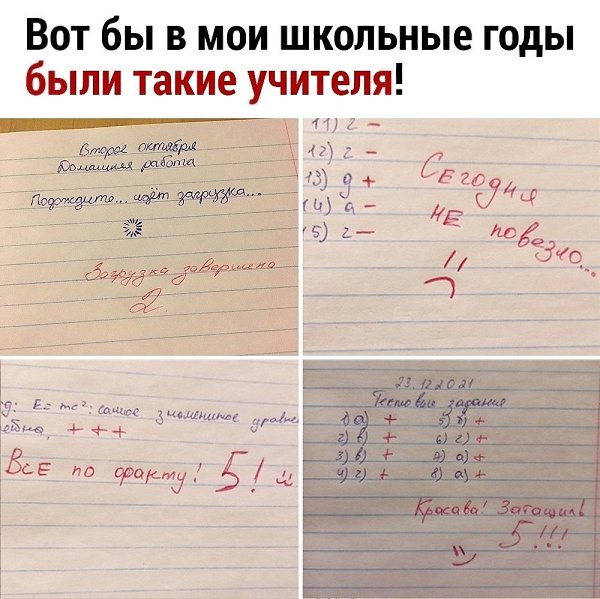 Вот бы в мои школьные годы
были такие учителя!
Второе октября
Домашняя работа
Подождите... идёт загрузка...
Загрузка завершена
2
11) г -
12) г -
13) д +
14) а -
15) г -
Сегодня
не повезло...
E = mc²: самое знаменитое
+ + +
Все по факту! 5!
23.12.2021
Тестовые задания
1) а) + 5) б) +
2) в) + 6) г) +
3) в) + 7) а) +
4) г) + 8) а) +
Красава! Затащиль
5!!!